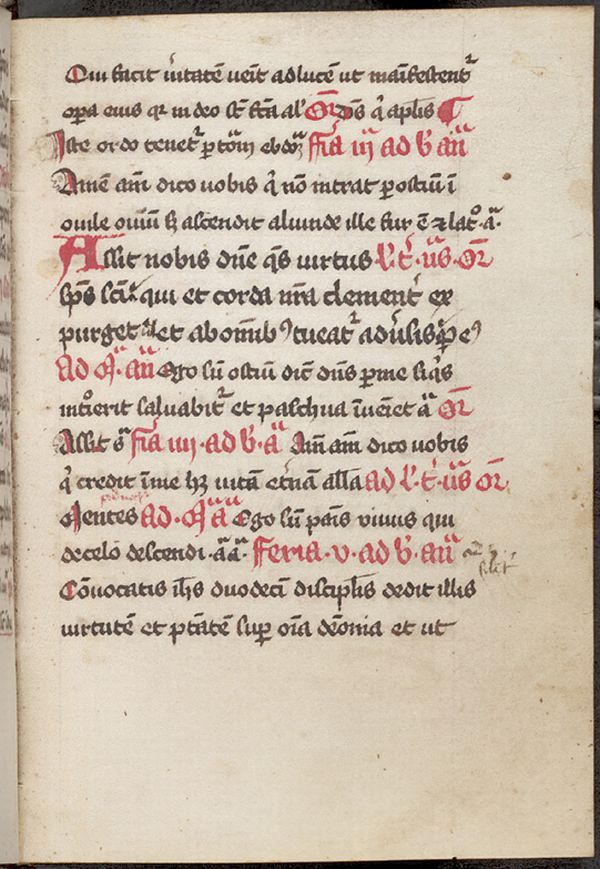 Qui facit v̾itatē ueīt ad lucē ut manifestent᷑
opera eius qꝛ in deo st̄ fc̄a al̾ Or̄ Ds̄ q̇ aplīs
Iste ordo tenet᷑ ꝑ totā ebdoꝫ Fr̄ia iij ad b̄ an̄
Amē am̄ dico uobis q̇ nō intrat ꝑ ostiū ī
ouile ouiū sꝫ ascendit aliunde ille fur ē ⁊ lat̊ · a̅
Assit nobis dn̄e qs̄ uirtus Or̄
sp̄s sc̄i qui et corda nr̄a clement̾ ex
purget et ab om̄ibꝯ tueat᷑ adu̾sis
ad m̄ · an̄ Ego sū ostiū dic̄ dn̄s ꝑ me siq̇s
int̊ierit saluabit᷑ et paschua īueīet a̅ Or̄
Assit Fr̄ia iiij · ad b̄ · a̅ Am̄ am̄ dico uobis
q̇ credit ī me hꝫ uitā et̾nā all̄a ad Or̄
Mentes ad · m̄ a̅ Ego sū panis viuus qui
de celo descendi · a̅a̅ · Feria · v · ad b̄ · an̄
Cōuocatis ih̄s duodecī discipl̄is dedit illis
uirtutē et ptātē sup̄ oīa dēonia et ut